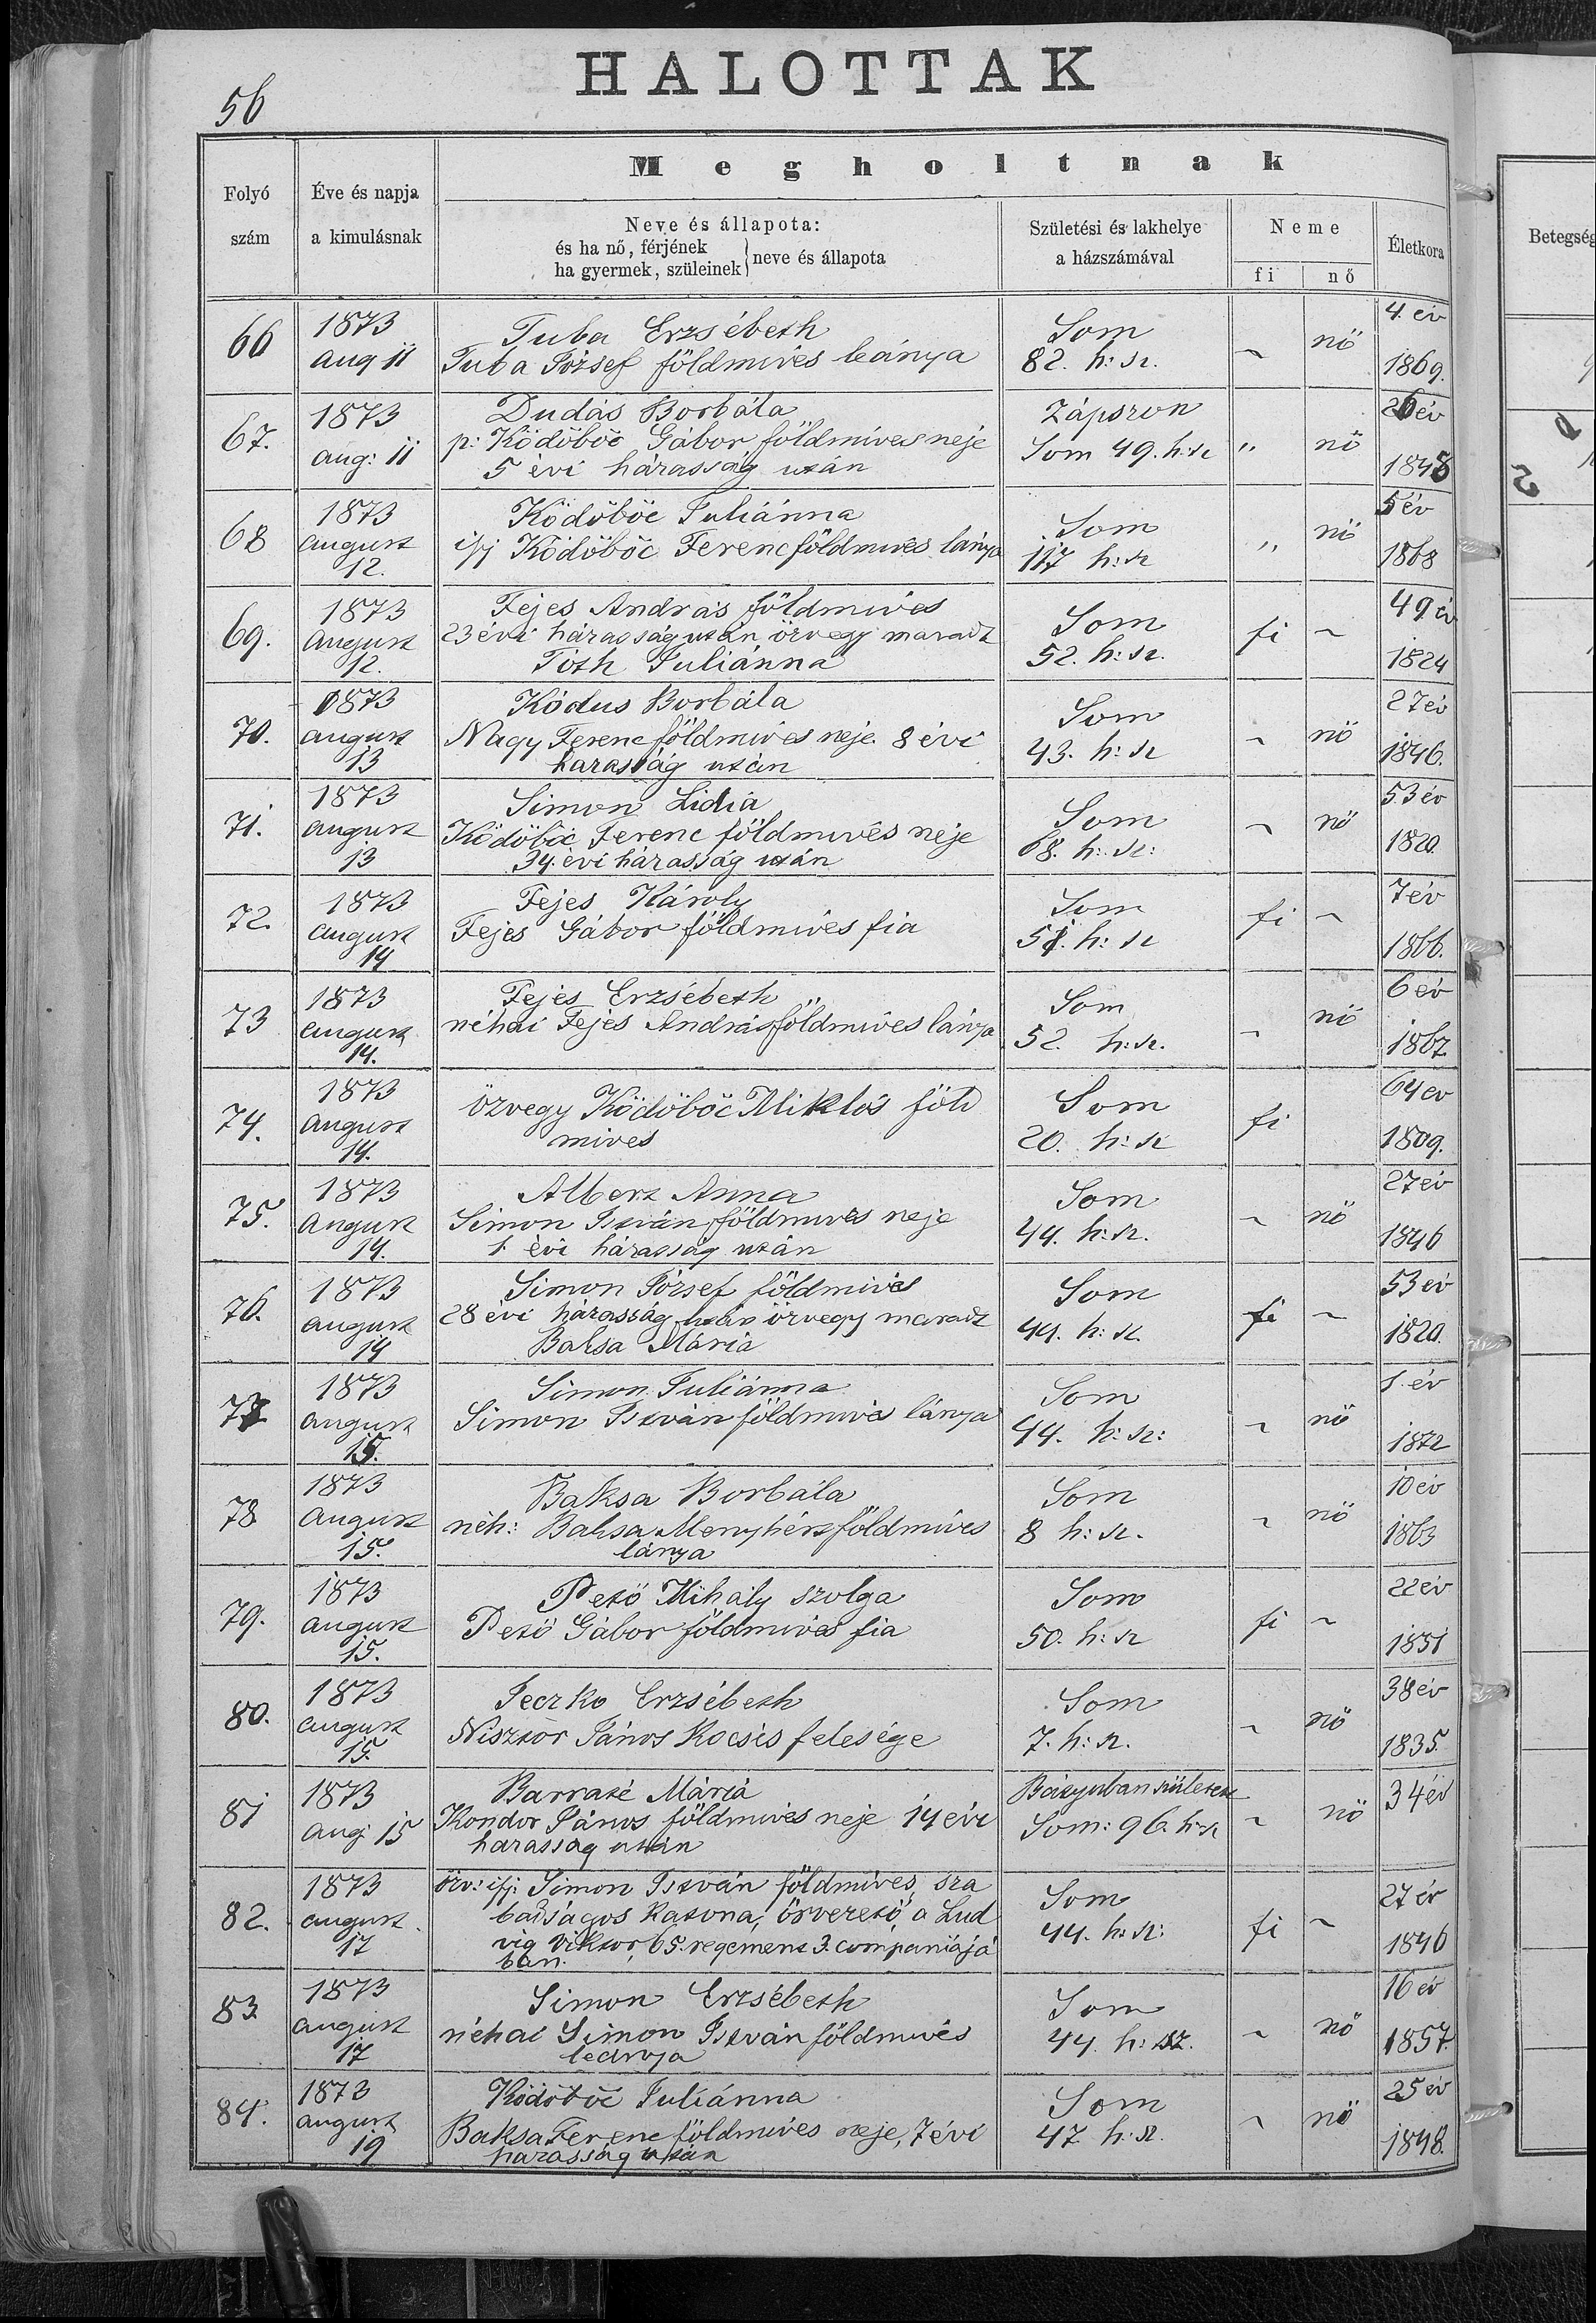 56
HALOTTAK
Folyó
szám
Éve és napja
a kimulásnak
Megholtnak
Neve és állapota:
és ha nő, férjének
ha gyermek, szüleinek
neve és állapota
Születési és lakhelye
a házszámával
Neme
fi
nő
Életkora
Betegség
66
1873
aug 11
Tuba Erzsébeth
Tuba József földmives leánya
Som
82. h: sz.
~
nő
4. év
1869.
67.
1873
aug: 11
Dudás Borbála
p: Ködöböc Gábor földmives neje
5 évi házasság után
Zápszon
Som 49. h: sz
"
nő
26 év
1848
68
1873
august
12.
Ködöböc Juliánna
ifj Ködöböc Ferenc földmives lánya
Som
117 h: sz
"
nő
5 év
1868
69.
1873
august
12.
Fejes András földmives
23 évi házasság után özvegy maradt
Tóth Juliánna
Som
52. h: sz.
fi
~
49 év
1824
70.
1873
august
13
Kódus Borbála
Nagy Ferenc földmives neje 8 évi
házasság után
Som
43. h: sz
~
nő
27 év
1846.
71.
1873
august
13
Simon Lidia
Ködöböc Ferenc földmivés neje
34. évi házasság után
Som
68. h: sz:
~
nő
53 év
1820.
72.
1873
august
14
Fejes Károly
Fejes Gábor földmives fia
Som
51. h: sz
fi
~
7 év
1866.
73
1873
august
14.
Fejes Erzsébeth
néhai Fejes András földmives lánya
Som
52. h: sz.
~
nő
6 év
1867
74.
1873
august
14.
özvegy Ködöböc Miklós föld
mives
Som
20. h: sz
fi
64 év
1809.
75.
1873
august
14.
Albert Anna
Simon István földmives neje
1. évi házasság után
Som
44. h: sz.
~
nő
27 év
1846
76.
1873
august
14
Simon József földmives
28 évi házasság után özvegy maradt
Baksa Mária
Som
44. h: sz.
fi
~
53 év
1820.
77
1873
august
15.
Simon Juliánna
Simon István földmives lánya
Som
44. h: sz:
~
nő
1. év
1872
78
1873
august
15.
Baksa Borbála
néh: Baksa Menyhért földmives
lánya
Som
8 h: sz.
~
nő
10 év
1863
79.
1873
august
15.
Pető Mihály szolga
Pető Gábor földmives fia
Som
50. h: sz
fi
~
22 év
1851
80.
1873
august
15.
Teczko Erzsébeth
Nisztor János kocsis felesége
Som
7. h: sz.
~
nő
38 év
1835.
81
1873
aug 15
Mária
Kondor János földmives neje 14 évi
házasság után
Bátyuban született
Som: 96. h: sz
~
nő
34 év
82.
1873
august.
17
özv: ifj: Simon István földmives, sza
badságos katona, őrvezető, a Lud
vig Viktor, 65. regement 3. companiájá
ban.
Som
44. h: sz:
fi
~
27 év
1846
83.
1873
august
17
Simon Erzsébeth
néhai Simon István földmivés
leánya
Som
44. h: sz.
~
nő
16 év
1857.
84.
1873
august
19
Ködöböc Juliánna
Baksa Ferenc földmives neje, 7 évi
házasság után
Som
47. h: sz.
~
nő
25 év
1848.